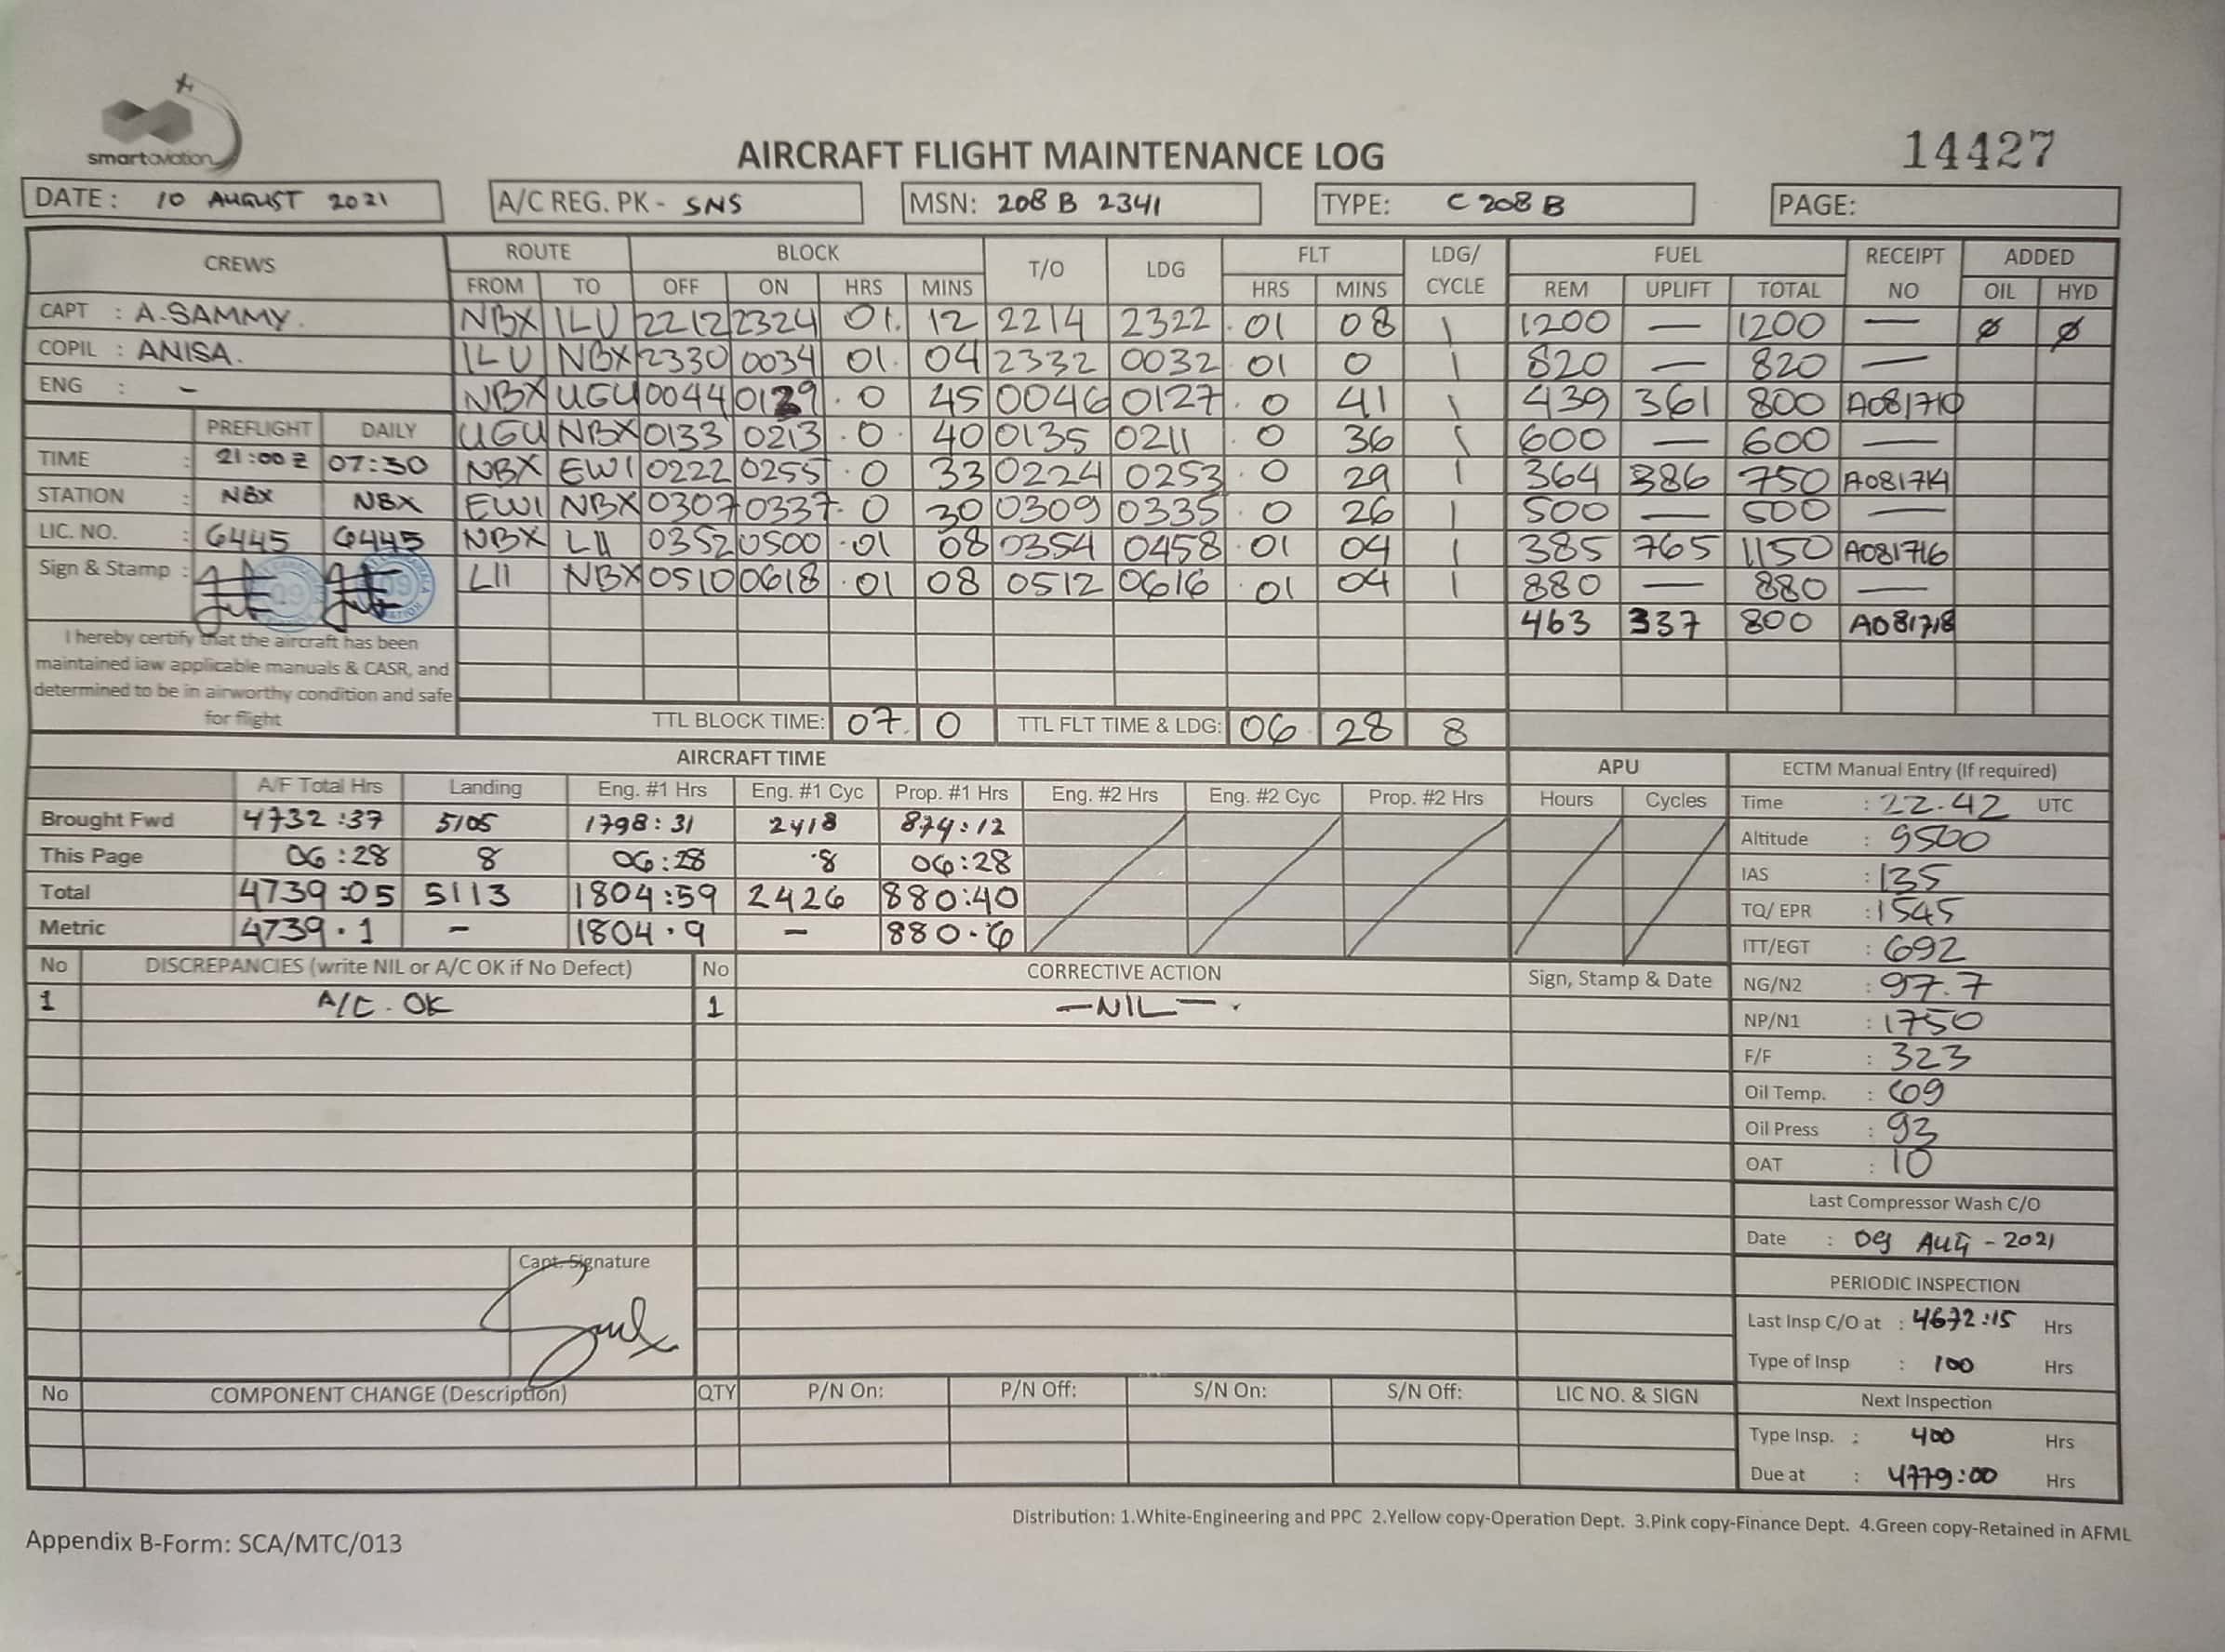 smartaviation
AIRCRAFT FLIGHT MAINTENANCE LOG
14427
DATE : 10 AUGUST 2021 A/C REG. PK - SNS MSN: 208 B 2341 TYPE: C 208 B PAGE:
CREWS ROUTE BLOCK T/O LDG FLT LDG/ CYCLE FUEL RECEIPT NO ADDED
FROM TO OFF ON HRS MINS HRS MINS REM UPLIFT TOTAL OIL HYD
CAPT : A. SAMMY. NBX ILU 2212 2324 01. 12 2214 2322 01 08 1 1200 — 1200 — ø ø
COPIL : ANISA. ILU NBX 2330 0034 01. 04 2332 0032 01 0 1 820 — 820 —
ENG : - NBX UGU 0044 0129 0 45 0046 0127 0 41 1 439 361 800 A081710
PREFLIGHT DAILY UGU NBX 0133 0213 0 40 0135 0211 0 36 1 600 — 600 —
TIME : 21:00 Z 07:30 NBX EWI 0222 0255 0 33 0224 0253 0 29 1 364 386 750 A081714
STATION : NBX NBX EWI NBX 0307 0337 0 30 0309 0335 0 26 1 500 — 500 —
LIC. NO. : 6445 6445 NBX LII 0352 0500 01 08 0354 0458 01 04 1 385 765 1150 A081716
Sign & Stamp : LII NBX 0510 0618 01 08 0512 0616 01 04 1 880 — 880 —
463 337 800 A081718
I hereby certify that the aircraft has been
maintained iaw applicable manuals & CASR, and
determined to be in airworthy condition and safe
for flight
TTL BLOCK TIME: 07. 0 TTL FLT TIME & LDG: 06 28 8
AIRCRAFT TIME APU ECTM Manual Entry (If required)
A/F Total Hrs Landing Eng. #1 Hrs Eng. #1 Cyc Prop. #1 Hrs Eng. #2 Hrs Eng. #2 Cyc Prop. #2 Hrs Hours Cycles Time : 22.42 UTC
Brought Fwd 4732:37 5105 1798:31 2418 874:12 Altitude : 9500
This Page 06:28 8 06:28 8 06:28 IAS : 135
Total 4739:05 5113 1804:59 2426 880:40 TQ/ EPR : 1545
Metric 4739.1 - 1804.9 - 880.6 ITT/EGT : 692
No DISCREPANCIES (write NIL or A/C OK if No Defect) No CORRECTIVE ACTION Sign, Stamp & Date NG/N2 : 97.7
1 A/C. OK 1 — NIL — . NP/N1 : 1750
F/F : 323
Oil Temp. : 69
Oil Press : 93
OAT : 10
Last Compressor Wash C/O
Date : 09 AUG - 2021
Capt. Signature
PERIODIC INSPECTION
Last Insp C/O at : 4672:15 Hrs
Type of Insp : 100 Hrs
No COMPONENT CHANGE (Description) QTY P/N On: P/N Off: S/N On: S/N Off: LIC NO. & SIGN Next Inspection
Type Insp. : 400 Hrs
Due at : 4779:00 Hrs
Distribution: 1.White-Engineering and PPC 2.Yellow copy-Operation Dept. 3.Pink copy-Finance Dept. 4.Green copy-Retained in AFML
Appendix B-Form: SCA/MTC/013